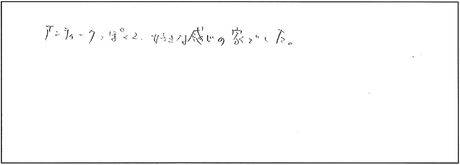 アンティークっぽくて、好きな感じの家でした。